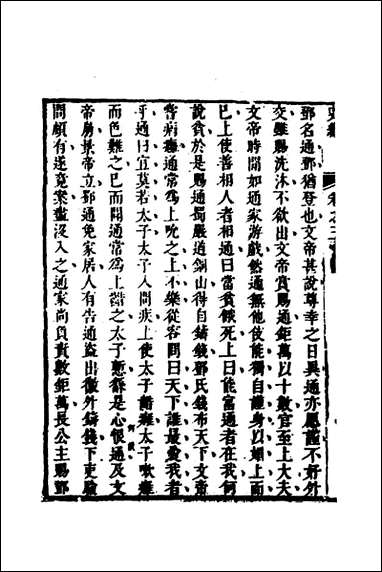 鄧名通鄧猶登也文帝甚說尊幸之日異通亦愿謹不好外
交雖賜洗沐不欲出文帝賞賜通鉅萬以十數官至上大夫
文帝時間如通家游戲然通無他伎能獨自謹身以媚上而
已上使善相人者相通曰當貧餓死上曰能富通者在我何
說貧於是賜通蜀嚴道銅山得自鑄錢鄧氏錢布天下文帝
嘗病癰通常爲上吮之上不樂從容問曰天下誰最愛我者
乎通曰宜莫若太子太子入問疾上使太子齰癰太子嗽癰
而色難之已而聞通常爲上齰之太子慙繇是心恨通及文
帝崩景帝立鄧通免家居人有告通盜出徼外鑄錢下吏驗
問頗有遂竟案盡沒入之通家尚負責數鉅萬長公主賜鄧